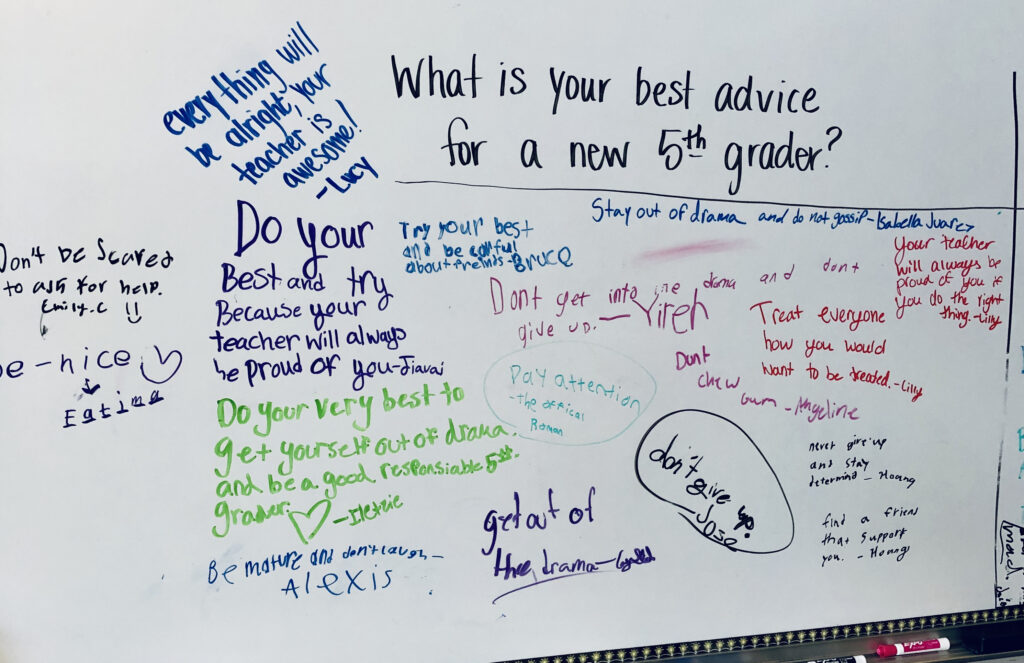 What is your best advice
for a new 5th grader?
everything will
be alright, your
teacher is
awesome!
-Lucy
Stay out of drama and do not gossip-Isabella Juarez
Do your
Best and try
Because your
teacher will always
be proud of you-Jiavai
Try your best
and be carful
about freinds-Bruce
Your teacher
will always be
proud of you if
you do the right
thing.-Lilly
Don't be Scared
to ask for help.
Emily.C !!
Dont get into the drama and dont
give up. -Yireh
Treat everyone
how you would
want to be treated.-Lilly
be-nice ♡
Pay attention
-the offical
Roman
Dont
chew
gum-Angeline
Do your very best to
get yourself out of drama
and be a good responsiable 5th.
grader. ♡
don't give up.
Jose
never give up
and stay
determind-Hoang
get out of
the drama-
find a friend
that support
you. -Hoang
Be mature and don't laugh-
Alexis